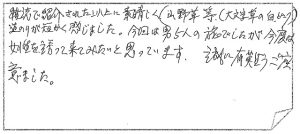 雑誌で紹介された以上に素晴しく(山野草等(大文字草の白など)
道のりが短かく感じました。今回は男5人の旅でしたが今度は
女性を誘って来てみたいと思っています。 誠に有難うござ
ました。